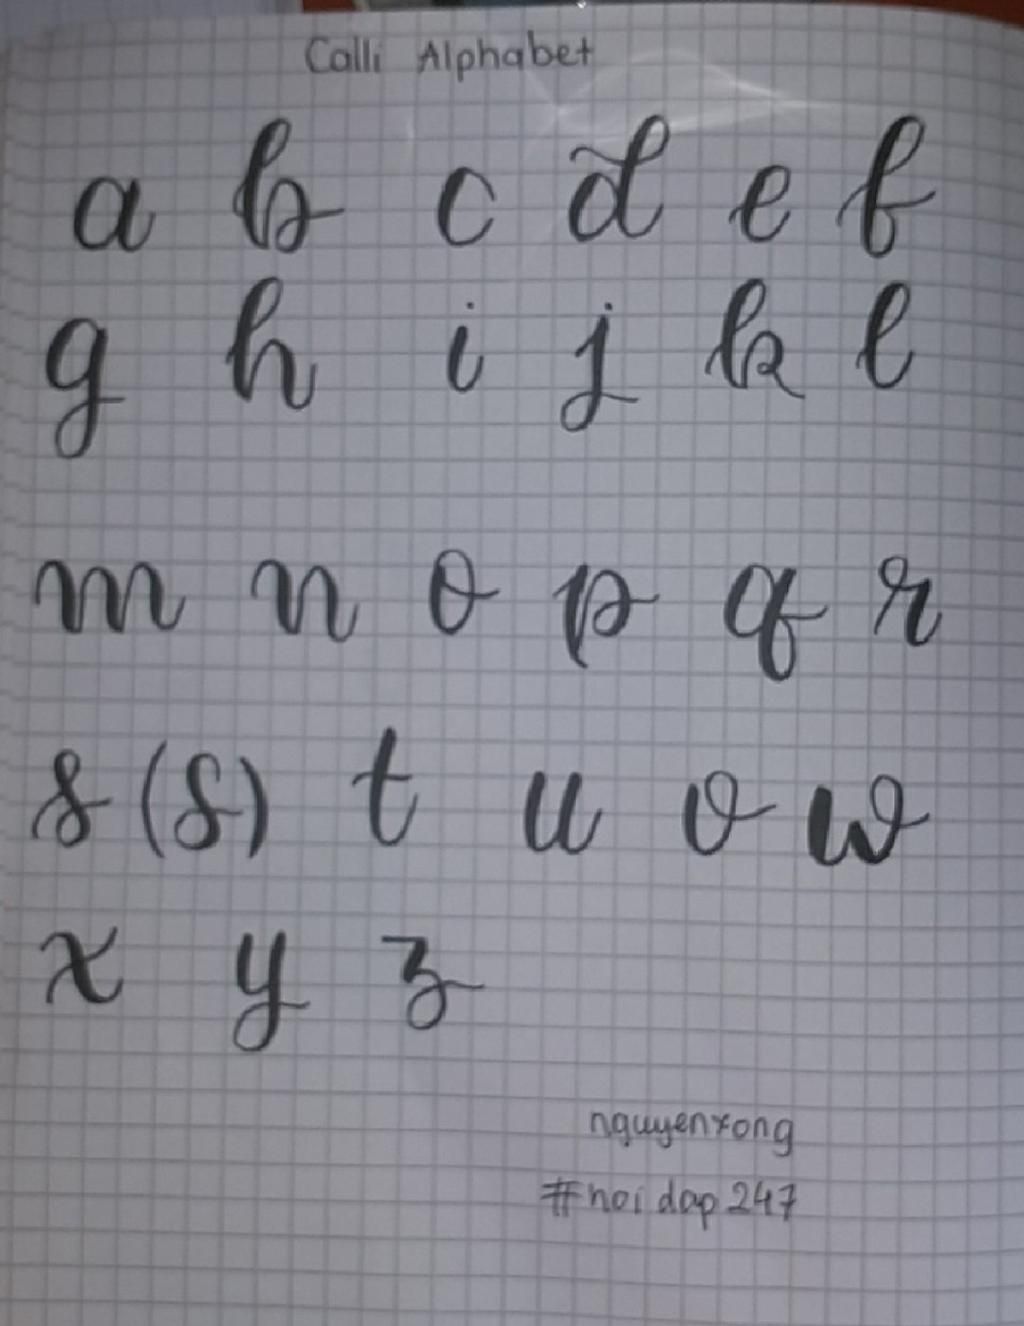 Calli Alphabet
a b c d e f
g h i j k l
m n o p q r
s (s) t u v w
x y z
nguyenxong
#hoidap247